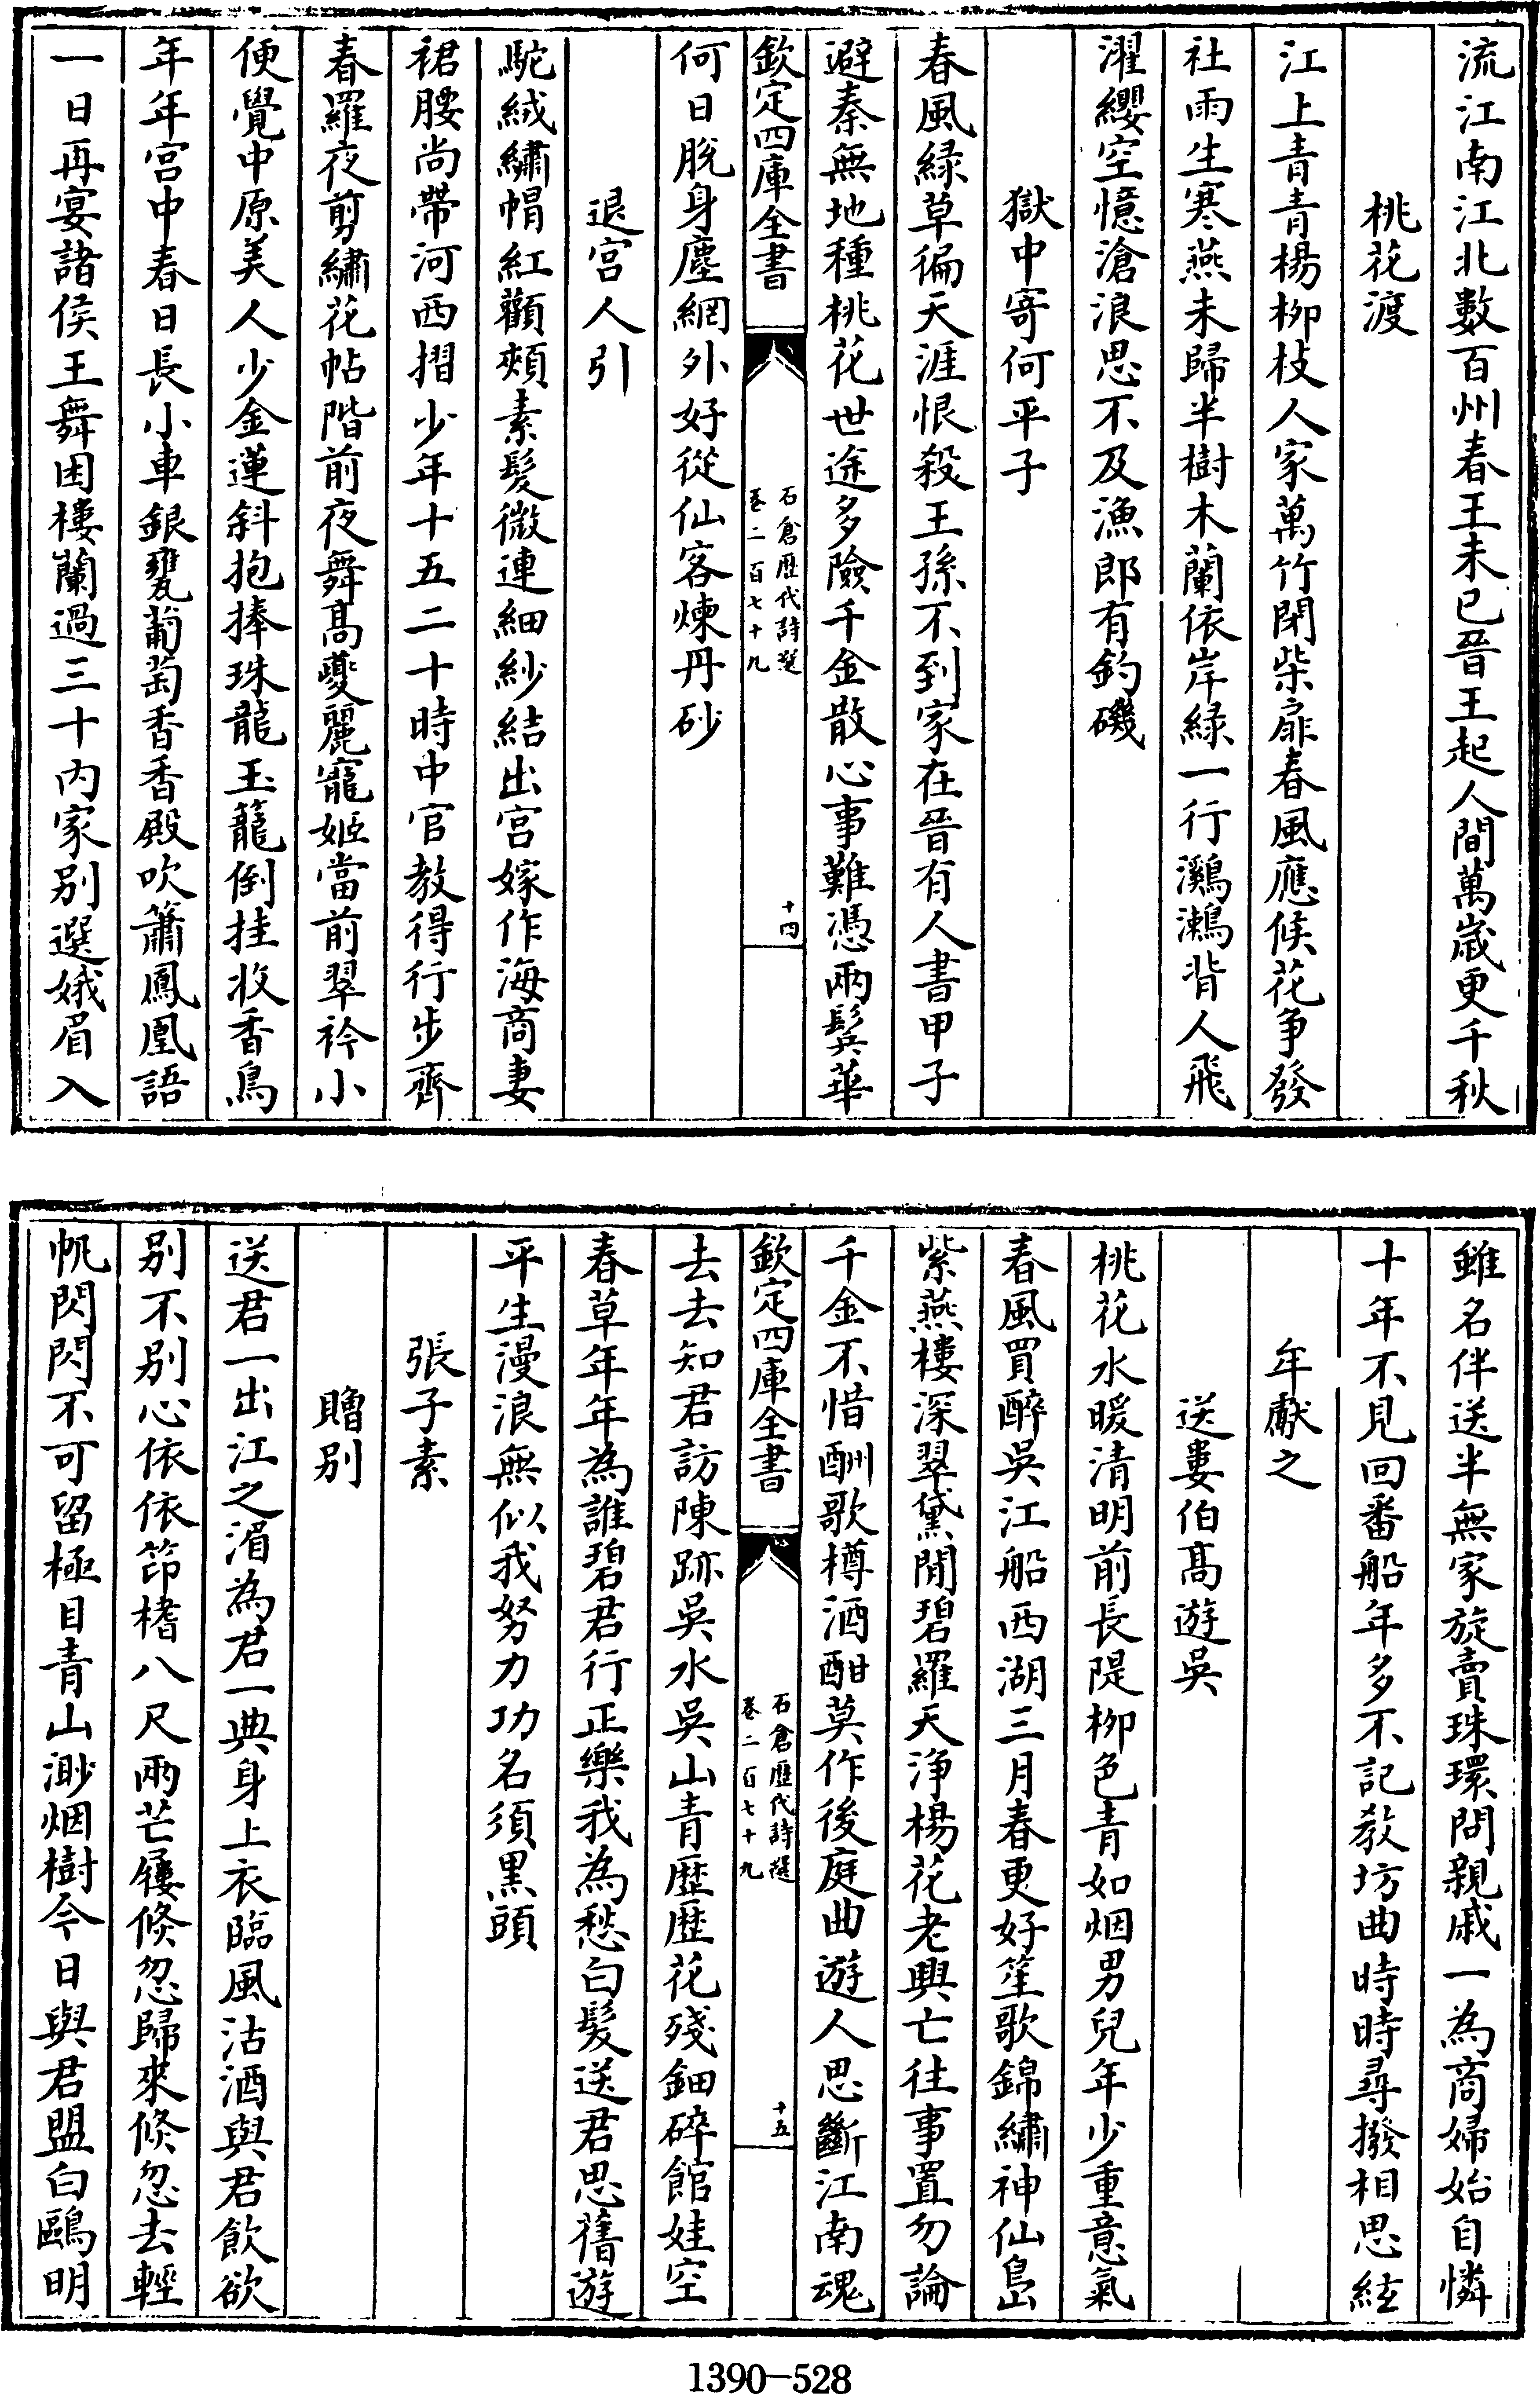 流江南江北數百州春王未已晉王起人間萬歳更千秋
桃花渡
江上青青楊柳枝人家萬竹閉柴扉春風應候花争發
社雨生寒燕未歸半樹木蘭依岸緑一行鸂鷘背人飛
濯纓空憶滄浪思不及漁郎有釣磯
獄中寄何平子
春風緑草徧天涯恨殺王孫不到家在晉有人書甲子
避秦無地種桃花世途多險千金散心事難憑兩鬂華
欽定四庫全書
石倉歴代詩選
卷二百七十九
十四
何日脫身塵網外好從仙客煉丹砂
退宫人引
駝絨繡帽紅顴頰素髮微連細紗結出宫嫁作海商妻
裙腰尚帶河西摺少年十五二十時中官教得行步齊
春羅夜剪繡花帖階前夜舞髙䕫麗寵姬當前翠衿小
便覺中原美人少金蓮斜抱捧珠龍玉籠倒挂收香鳥
年年宫中春日長小車銀甕葡萄香香殿吹簫鳳凰語
一日再宴諸侯王舞困樓蘭過三十内家别選娥眉入
雖名伴送半無家旋賣珠環問親戚一為商婦始自憐
十年不見回番船年多不記教坊曲時時尋撥相思絃
牟獻之
送婁伯髙遊吳
桃花水暖清明前長隄柳色青如烟男兒年少重意氣
春風買醉吳江船西湖三月春更好笙歌錦繡神仙島
紫燕樓深翠黛閒碧羅天浄楊花老興亡往事置勿論
千金不惜酬歌樽酒酣莫作後庭曲遊人思斷江南魂
欽定四庫全書
石倉歴代詩選
卷二百七十九
十五
去去知君訪陳跡吳水吳山青歴歴花殘鈿碎館娃空
春草年年為誰碧君行正樂我為愁白髮送君思舊遊
平生漫浪無似我努力功名須黒頭
張子素
贈别
送君一出江之湄為君一典身上衣臨風沽酒與君飲欲
别不别心依依笻榰八尺兩芒屨倐忽歸來倐忽去輕
帆閃閃不可留極目青山渺烟樹今日與君盟白鷗明
1390—528